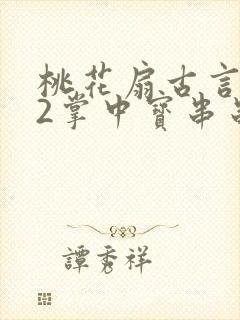 桃花扇古言
2掌中寳串
譚秀祥